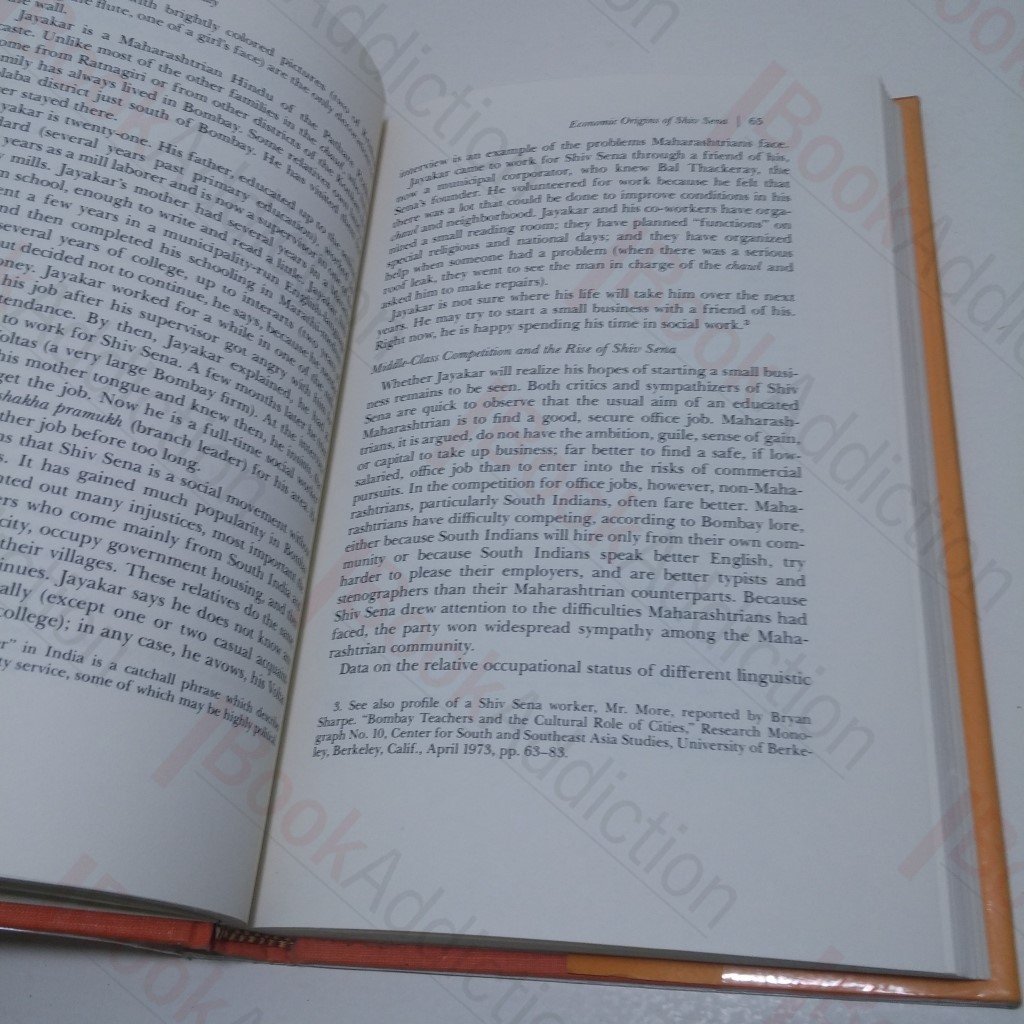 with brightly colored pictures (two of
the wall.
flute, one of a girl's face) are the only
Jayakar is a Maharashtrian Hindu of the
caste. Unlike most of the other families in the chawl
come from Ratnagiri or from other districts of the
family has always lived in Bombay. Some relatives
laba district just south of Bombay. He has visited
er stayed there.
Jayakar is twenty-one. His father, educated up to the
dard (several years past primary education),
years as a mill laborer and is now a supervisor in
mills. Jayakar's mother had several years in a
n school, enough to write and read a little. Jayakar
ent a few years in a municipality-run English
nd then completed his schooling in Marathi
several years of college, up to interarts (two years
ut decided not to continue, he says, because
oney. Jayakar worked for a while in one of the
his job after his supervisor got angry with him
tendance. By then, Jayakar explained, he had
to work for Shiv Sena. A few months later he
Voltas (a very large Bombay firm). At the
his mother tongue and knew then, he insists,
get the job. Now he is a full-time social worker
shakha pramukh (branch leader) for his area. He
ther job before too long.
ns that Shiv Sena is a social movement
s. It has gained much popularity in Bombay
nted out many injustices, most important
ers who come mainly from South India
city, occupy government housing, and
their villages. These relatives do the same
inues. Jayakar says he does not know
ally (except one or two casual
college); in any case, he avows, his Voltas
r" in India is a catchall phrase which
ty service, some of which may be highly political
Economic Origins of Shiv Sena | 65
interview is an example of the problems Maharashtrians face.
Jayakar came to work for Shiv Sena through a friend of his,
now a municipal corporator, who knew Bal Thackeray, the
Sena's founder. He volunteered for work because he felt that
there was a lot that could be done to improve conditions in his
chawl and neighborhood. Jayakar and his co-workers have orga-
nized a small reading room; they have planned "functions" on
special religious and national days; and they have organized
help when someone had a problem (when there was a serious
roof leak, they went to see the man in charge of the chawl and
asked him to make repairs).
Jayakar is not sure where his life will take him over the next
years. He may try to start a small business with a friend of his.
Right now, he is happy spending his time in social work.³
Middle-Class Competition and the Rise of Shiv Sena
Whether Jayakar will realize his hopes of starting a small busi-
ness remains to be seen. Both critics and sympathizers of Shiv
Sena are quick to observe that the usual aim of an educated
Maharashtrian is to find a good, secure office job. Maharash-
trians, it is argued, do not have the ambition, guile, sense of gain,
or capital to take up business; far better to find a safe, if low-
salaried, office job than to enter into the risks of commercial
pursuits. In the competition for office jobs, however, non-Maha-
rashtrians, particularly South Indians, often fare better. Maha-
rashtrians have difficulty competing, according to Bombay lore,
either because South Indians will hire only from their own com-
munity or because South Indians speak better English, try
harder to please their employers, and are better typists and
stenographers than their Maharashtrian counterparts. Because
Shiv Sena drew attention to the difficulties Maharashtrians had
faced, the party won widespread sympathy among the Maha-
rashtrian community.
Data on the relative occupational status of different linguistic
3. See also profile of a Shiv Sena worker, Mr. More, reported by Bryan
Sharpe. "Bombay Teachers and the Cultural Role of Cities," Research Mono-
graph No. 10, Center for South and Southeast Asia Studies, University of Berke-
ley, Berkeley, Calif., April 1973, pp. 63–83.
BookAddiction